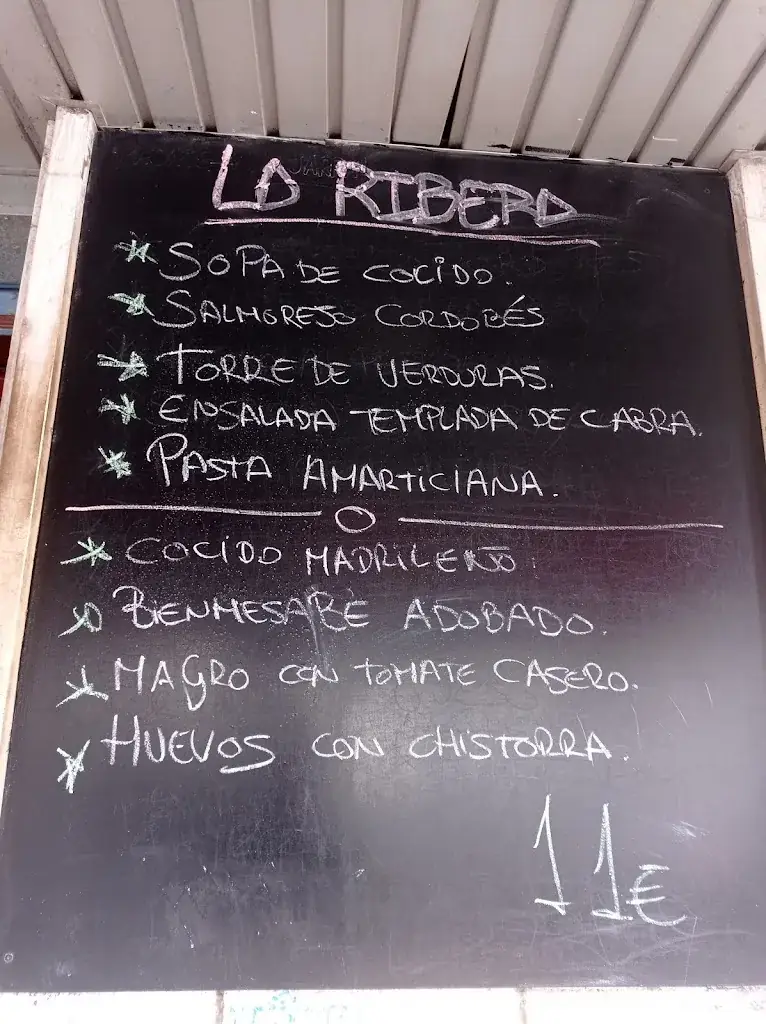 LA RIBERA
* SOPA DE COCIDO.
* SALMOREJO CORDOBÉS
* TORRE DE VERDURAS.
* ENSALADA TEMPLADA DE CABRA.
* PASTA AMARTICIANA.
* COCIDO MADRILEÑO.
* BIENMESABE ADOBADO.
* MAGRO CON TOMATE CASERO.
* HUEVOS CON CHISTORRA.
11€